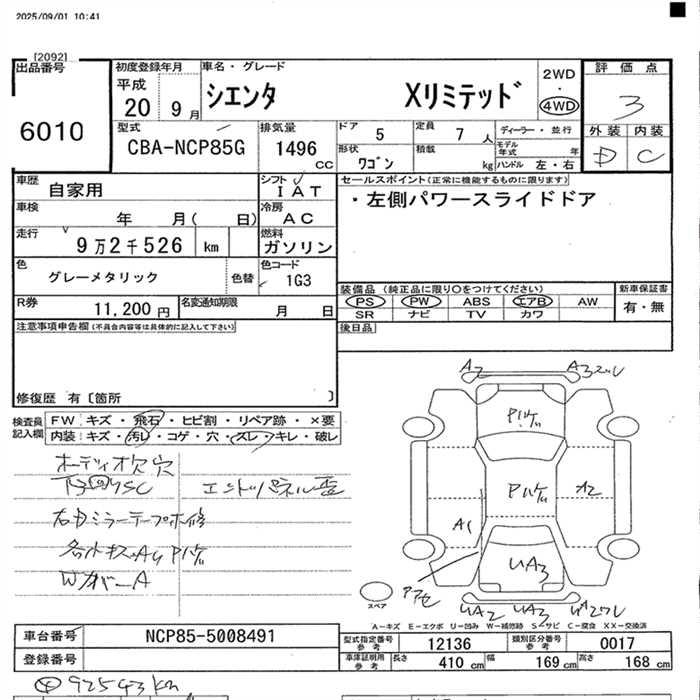 2025/09/01 10:41
[2092]
出品番号
6010
初度登録年月
平成
20 9月
車名・グレード
シエンタ Xリミテッド
2WD
・
4WD
評価点
3
外装 内装
D C
型式
CBA-NCP85G
排気量
1496
CC
ドア 5
定員 7 人
形状 ワゴン
積載 kg
ディーラー・並行
モデル年式 年
ハンドル 左・右
車歴 自家用
シフト IAT
車検 年 月( 日)
冷房 AC
走行 9万2千526 km
燃料 ガソリン
色 グレーメタリック
色替
色コード 1G3
R券 11,200 円
名変通知期限 月 日
セールスポイント(正常に機能するものに限ります)
・左側パワースライドドア
装備品(純正品に限り○をつけてください)
PS PW ABS エアB AW
SR ナビ TV カワ
新車保証書
有・無
後日品
注意事項申告欄(不具合内容等は具体的に記入して下さい)
修復歴 有〔箇所 〕
検査員記入欄
FW:キズ・飛石・ヒビ割・リペア跡・×要
内装:キズ・汚レ・コゲ・穴・ズレ・キレ・破レ
オーディオ欠穴
エンドパネル歪
右ドミラーテープ補修
各小キズ・AU Pハゲ
Wカバー A
A2
A3
Pハゲ
Pハゲ
A2
A1
UA3
UA2
UA3
スペア
A-キズ E-エクボ U-凹み W-補修跡 S-サビ C-腐食 XX-交換済
車台番号 NCP85-5008491
登録番号
型式指定番号 参考 12136
類別区分番号 参考 0017
車庫証明用 参考 長さ 410 cm 幅 169 cm 高さ 168 cm
92543km